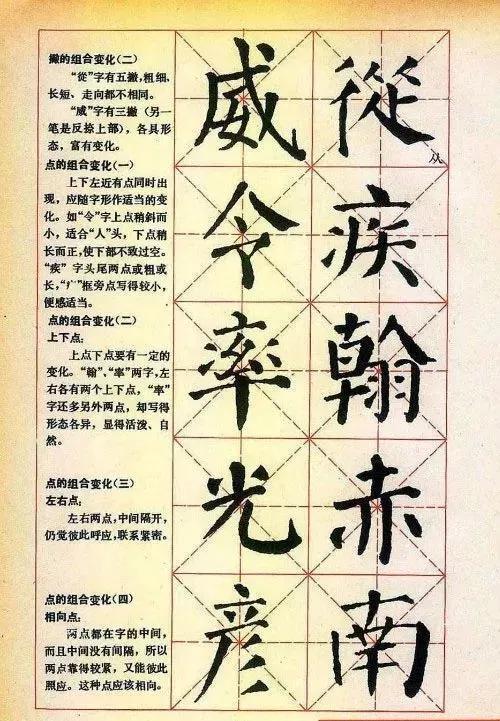 撇的组合变化(二)
“從”字有五撇,粗细、
长短、走向都不相同。
“威”字有三撇(另一
笔是反捺上部),各具形
态,富有变化。
点的组合变化(一)
上下左近有点同时出
现,应随字形作适当的变
化。如“令”字上点稍斜而
小,适合“人”头,下点稍
长而正,使下部不致过空。
“疾”字头尾两点或粗或
长,“疒”框旁点写得较小,
便感适当。
点的组合变化(二)
上下点:
上点下点要有一定的
变化。“翰”、“率”两字,左
右各有两个上下点,“率”
字还多另外两点,却写得
形态各异,显得活泼、自
然。
点的组合变化(三)
左右点:
左右两点,中间隔开,
仍觉彼此呼应,联系紧密。
点的组合变化(四)
相向点:
两点都在字的中间,
而且中间没有间隔,所以
两点靠得较紧,又能彼此
照应。这种点应该相向。
從
从
疾
翰
赤
南
威
令
率
光
彦